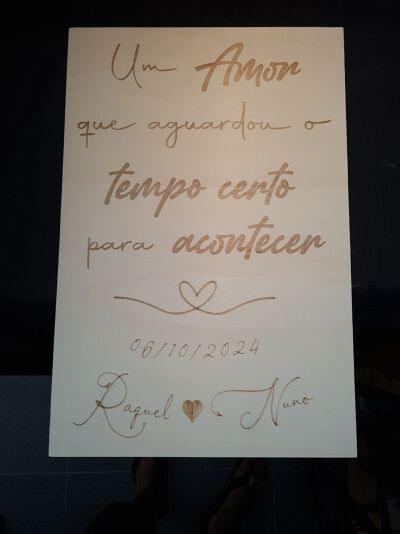 Um Amor
que aguardou o
tempo certo
para acontecer
06/10/2024
Raquel Nuno